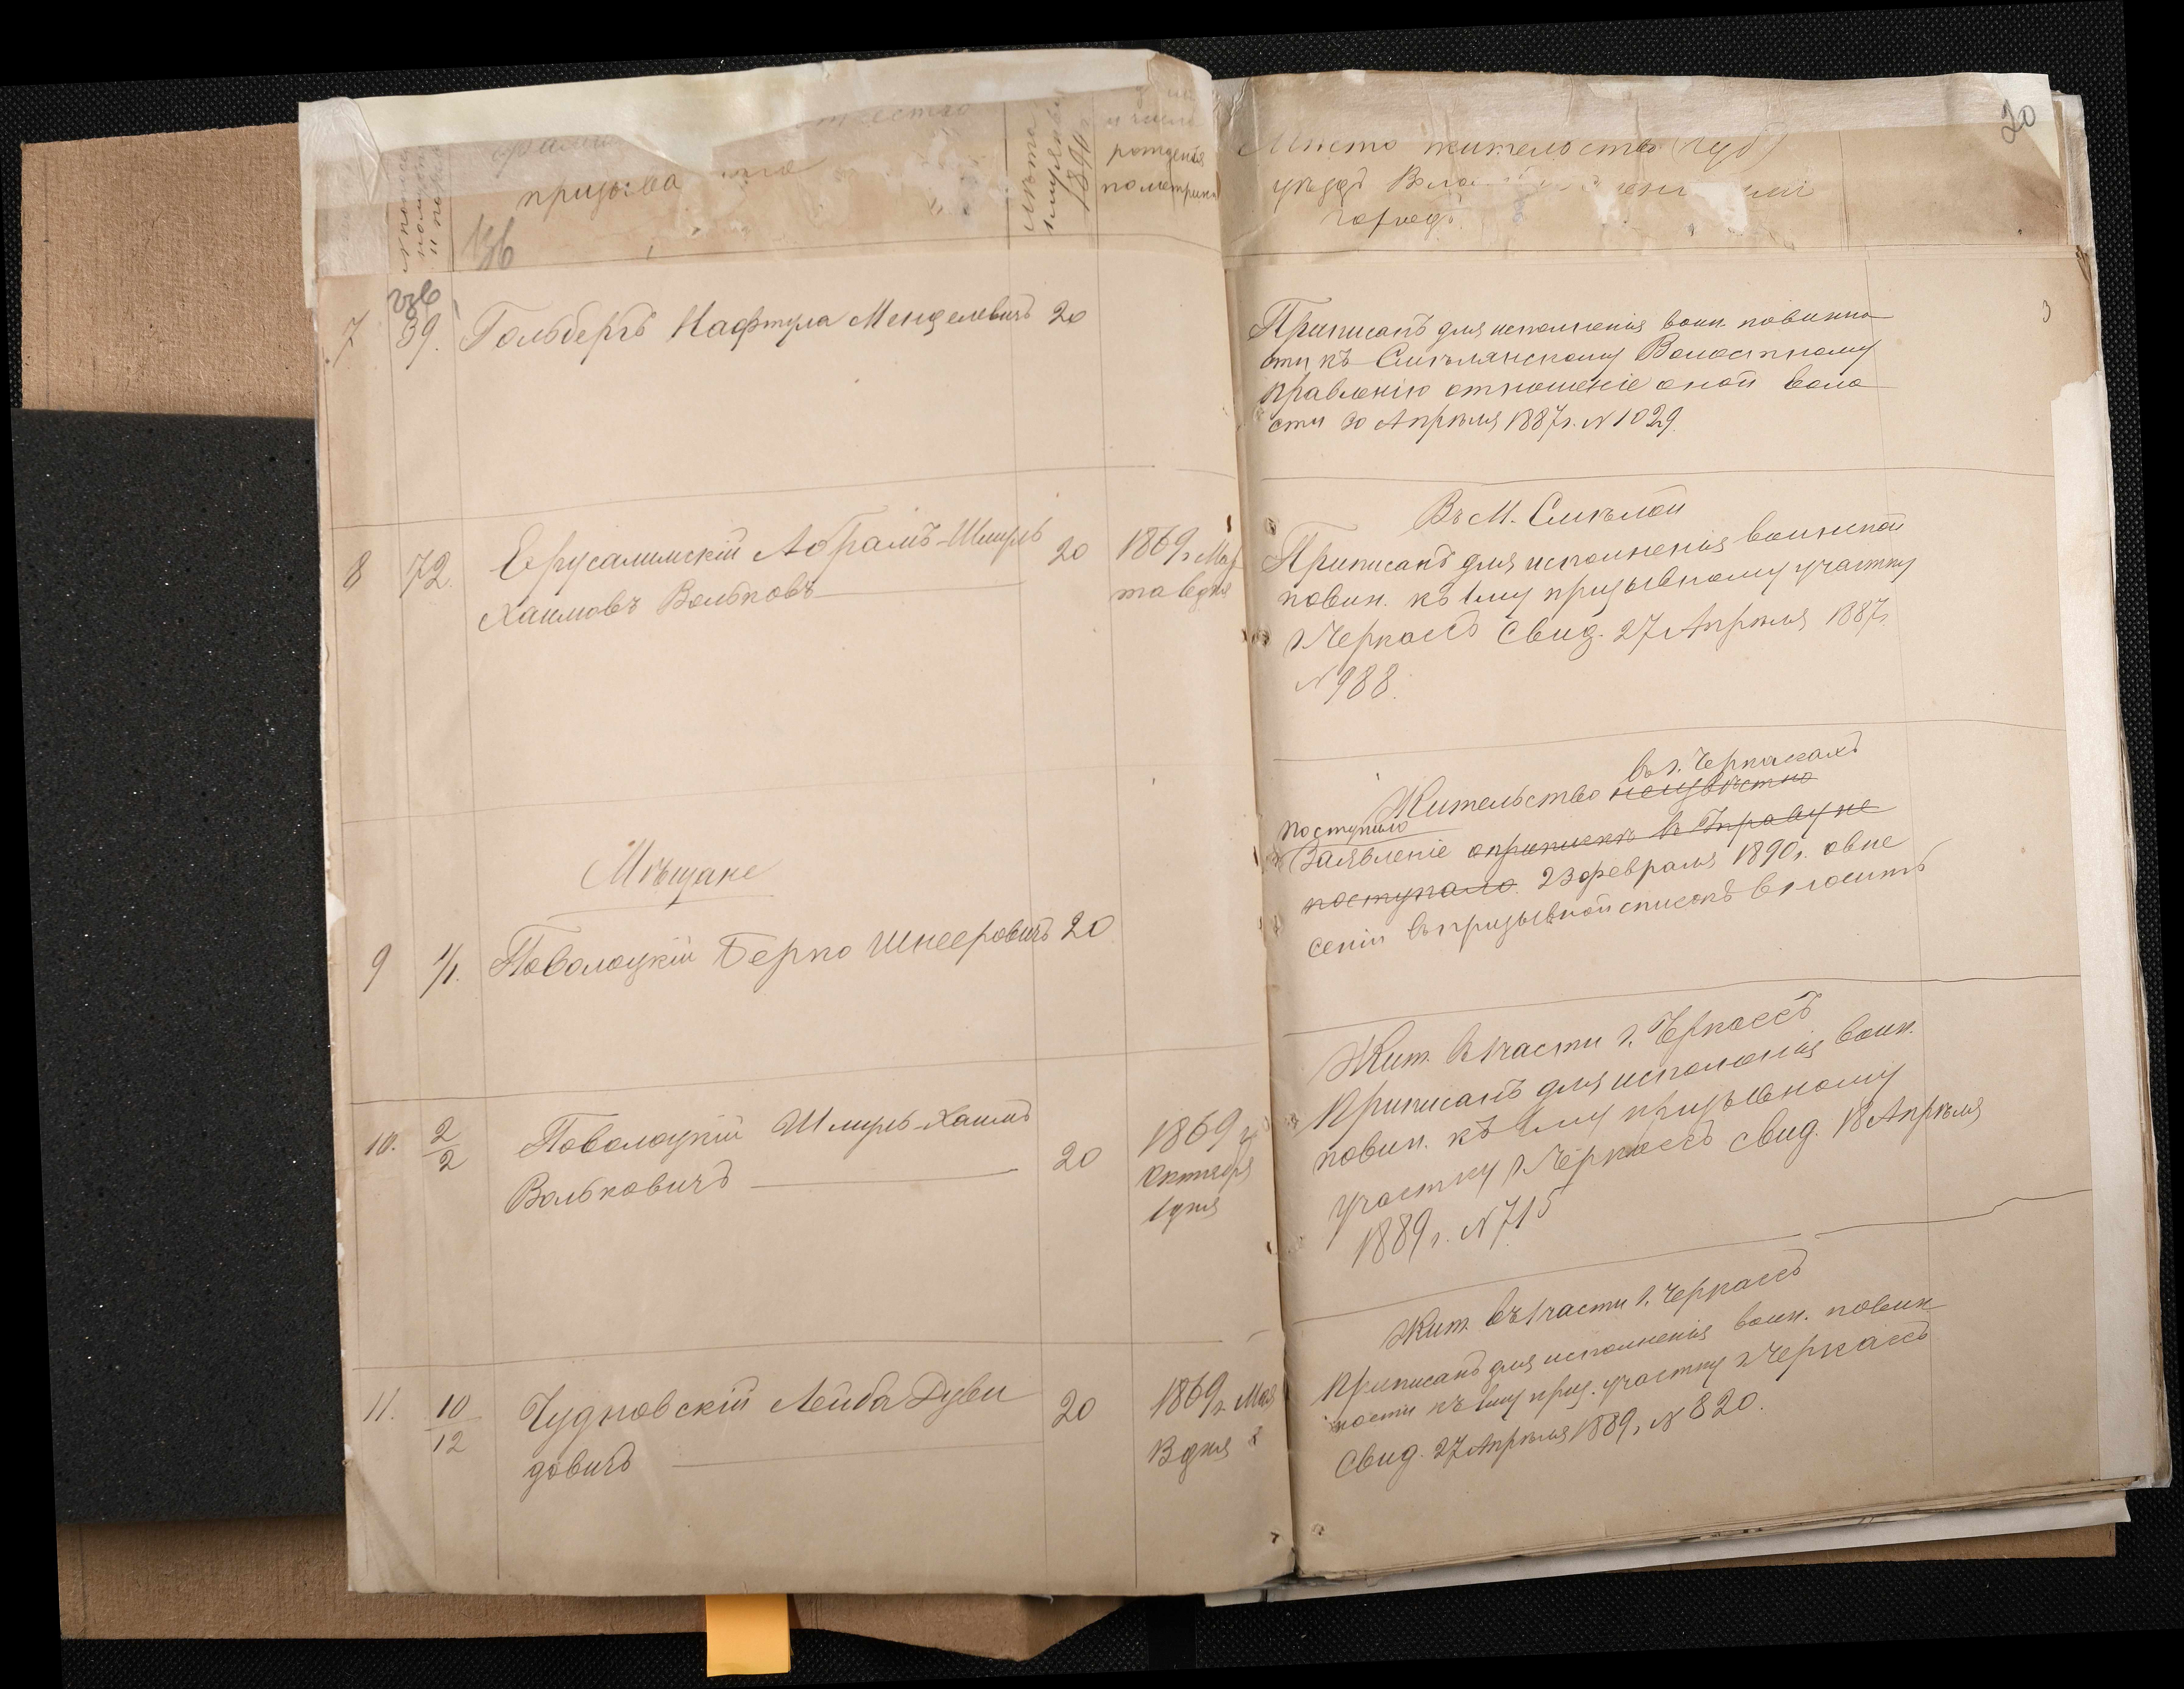 фамилия отчество
призыва
лѣта
1890 г.
и число
рожденія
по метрикѣ
20
Мѣсто жительства (губ)
уѣздъ
городъ.
136
7 39. Гольбергъ Нафтула Менделевичъ 20
Приписанъ для исполненія воин. повинно
сти къ Смѣлянскому Волостному
правленію отношеніе оной воло
сти 30 Апрѣля 1887 г. N 1029
3
8 72. Ерусалимскій Абрамъ-Шмуль 20 1869 г. Мар
Хаимовъ Вольковъ та 6 дня
Въ М. Смѣлой
Приписанъ для исполненія воинской
повин. къ 1му призывному участку
г. Черкассъ Свид. 27 Апрѣля 1887 г.
N 988.
Мѣщане
9 1/1. Поволоцкій Берко Шнееровичъ 20
въ г. Черкасахъ
Жительство неизвѣстно
поступило
Заявленіе о припискѣ въ Управу не
поступало. 23 февраля 1890 г. о вне
сеніи въ призывной списокъ
10. 2/2 Поволоцкій Шмуль-Хаимъ 20 1869 г.
Вольковичъ Октября
1 дня
Жит. въ 1 части г. Черкассъ
Приписанъ для исполненія воин.
повин. къ 1му призывному
участку г. Черкассъ свид. 18 Апрѣля
1889 г. N 715
11. 10/12 Чудновскій Лейба Дуви 20 1869 г. Мая
довичъ 13 дня
Жит. въ 1 части г. Черкассъ
Приписанъ для исполненія воин. повин
ности къ 1му приз. участку г. Черкассъ
Свид. 27 Апрѣля 1889 г. N 820.